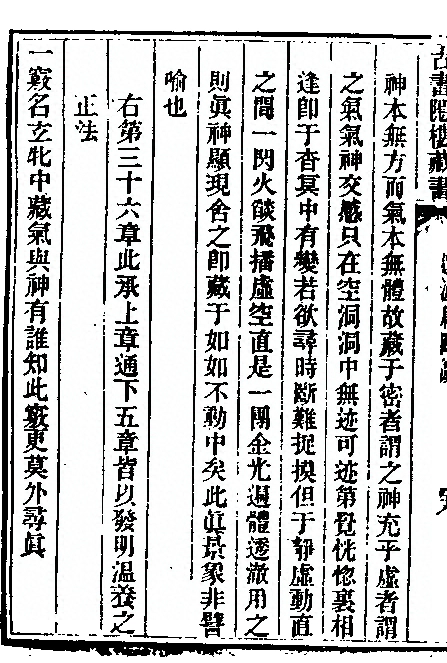 古書隱樓藏書
神本無方而氣本無體故藏于密者謂之神充乎虛者謂
之氣氣神交感只在空洞洞中無迹可迹第覺恍惚裏相
逢卽于杳冥中有變若欲尋時斷難捉摸但于靜虛動直
之間一閃火燄飛播虛空直是一團金光遍體透澈用之
則眞神顯現舍之卽藏于如如不動中矣此眞景象非譬
喻也
右第三十六章此承上章通下五章皆以發明溫養之
正法
一竅名玄牝中藏氣與神有誰知此竅更莫外尋眞